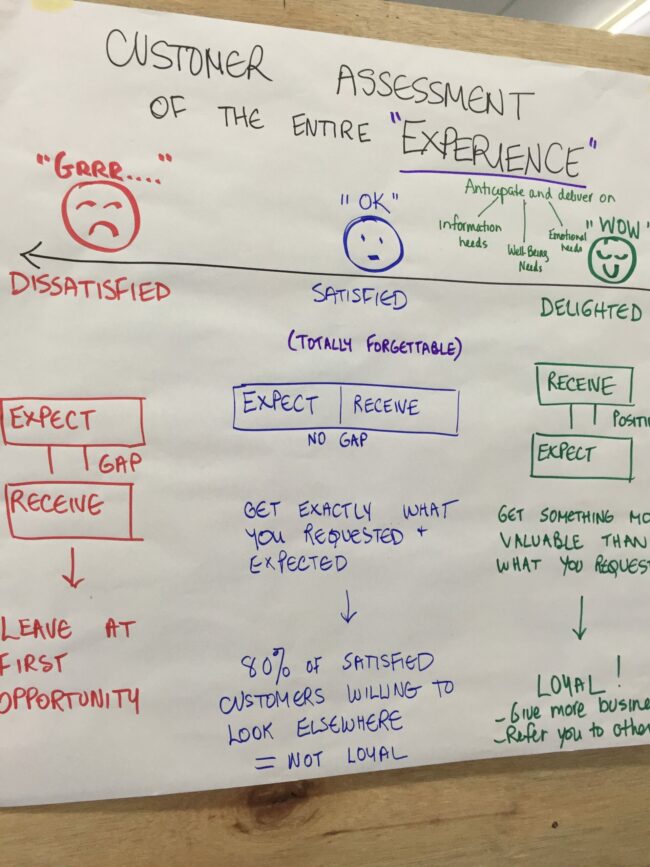 CUSTOMER ASSESSMENT
OF THE ENTIRE "EXPERIENCE"
"GRRR...."
DISSATISFIED
EXPECT
GAP
RECEIVE
LEAVE AT
FIRST
OPPORTUNITY
"OK"
SATISFIED
(TOTALLY FORGETTABLE)
EXPECT | RECEIVE
NO GAP
GET EXACTLY WHAT
YOU REQUESTED +
EXPECTED
80% OF SATISFIED
CUSTOMERS WILLING TO
LOOK ELSEWHERE
= NOT LOYAL
Anticipate and deliver on
Information
needs
Well-Being
Needs
Emotional
needs
"WOW"
DELIGHTED
RECEIVE
EXPECT
GET SOMETHING
VALUABLE THAN
WHAT YOU
LOYAL!
- Give more
- Refer you to